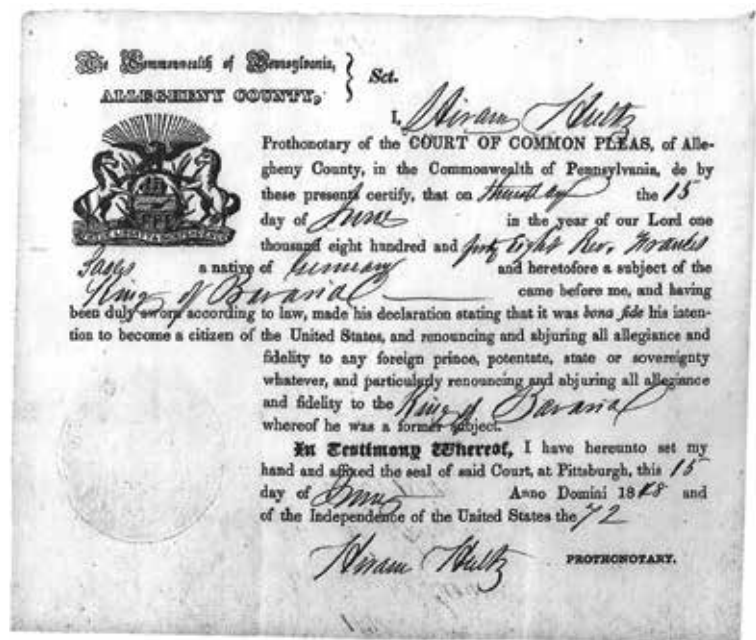 The Commonwealth of Pennsylvania,
ALLEGHENY COUNTY,
Sct.
I, Hiram Hultz
Prothonotary of the COURT OF COMMON PLEAS, of Alle-
gheny County, in the Commonwealth of Pennsylvania, do by
these presents certify, that on thursday the 15
day of June in the year of our Lord one
thousand eight hundred and forty eight Rev. Frances
Sales a native of Germany and heretofore a subject of the
King of Bavaria came before me, and having
been duly sworn according to law, made his declaration stating that it was bona fide his inten-
tion to become a citizen of the United States, and renouncing and abjuring all allegiance and
fidelity to any foreign prince, potentate, state or sovereignty
whatever, and particularly renouncing and abjuring all allegiance
and fidelity to the King of Bavaria
whereof he was a former subject.
In Testimony Whereof, I have hereunto set my
hand and affixed the seal of said Court, at Pittsburgh, this 15
day of June Anno Domini 1848 and
of the Independence of the United States the 72
Hiram Hultz PROTHONOTARY.